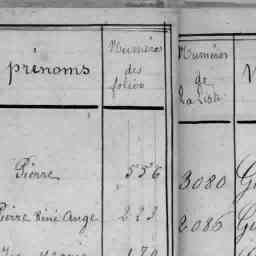 prénoms
Numéros
des
folios
Numéros
de
la liste
Pierre 556 3080
Pierre René Ange 223 2086
179